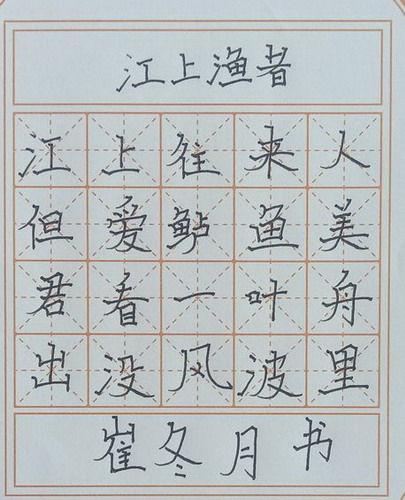 江上渔者
江上往来人
但爱鲈鱼美
君看一叶舟
出没风波里
崔冬月书